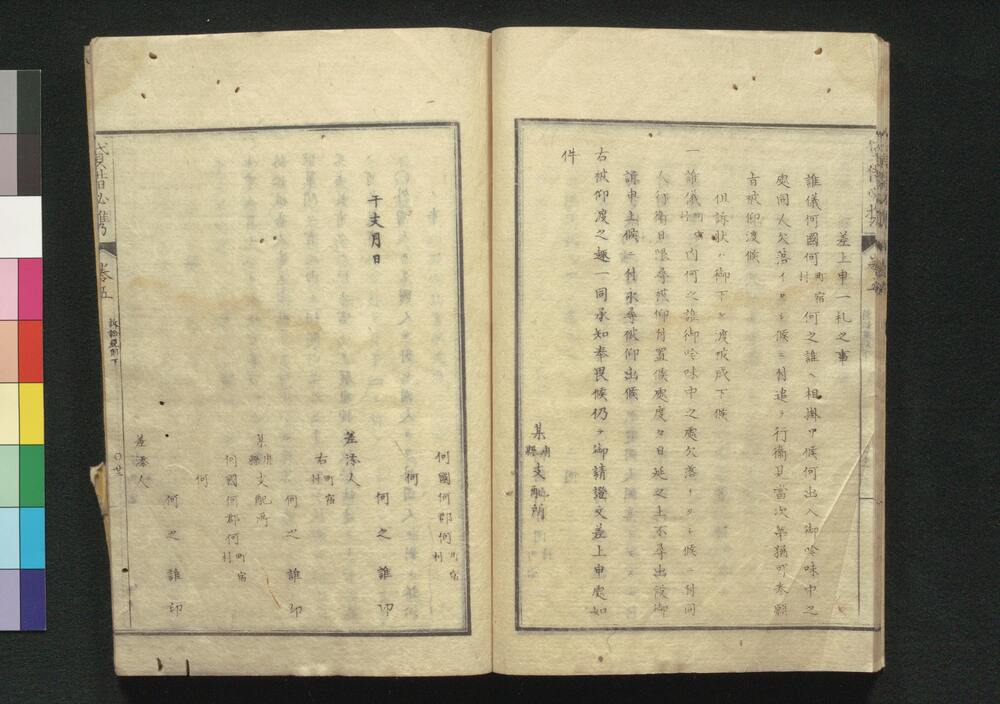 差上申一札之事
誰儀何國何町宿村何之誰ヘ相掛リ候何出入御吟味中之
處同人欠落イタシ候ニ付追テ行衛見當次第猶可奉願
旨被仰渡候
但訴狀ハ御下ケ渡被成下候
一誰儀町宿村内何之誰御吟味中之處欠落イタシ候ニ付同
人行衛日限尋被仰付置候處度々日延之上不尋出段御
訴申上候ニ付永尋被仰出候
右被仰渡之趣一同承知奉畏候仍テ御請證文差上申處如
件
某府縣支配所
何國何郡何町宿村
何
干支月日
何之誰印
差添人
右町宿村
何之誰印
某府縣支配所
何國何郡何町宿村
何
何之誰印
差添人
貸借必携
卷五
訴訟規則下
〇廿